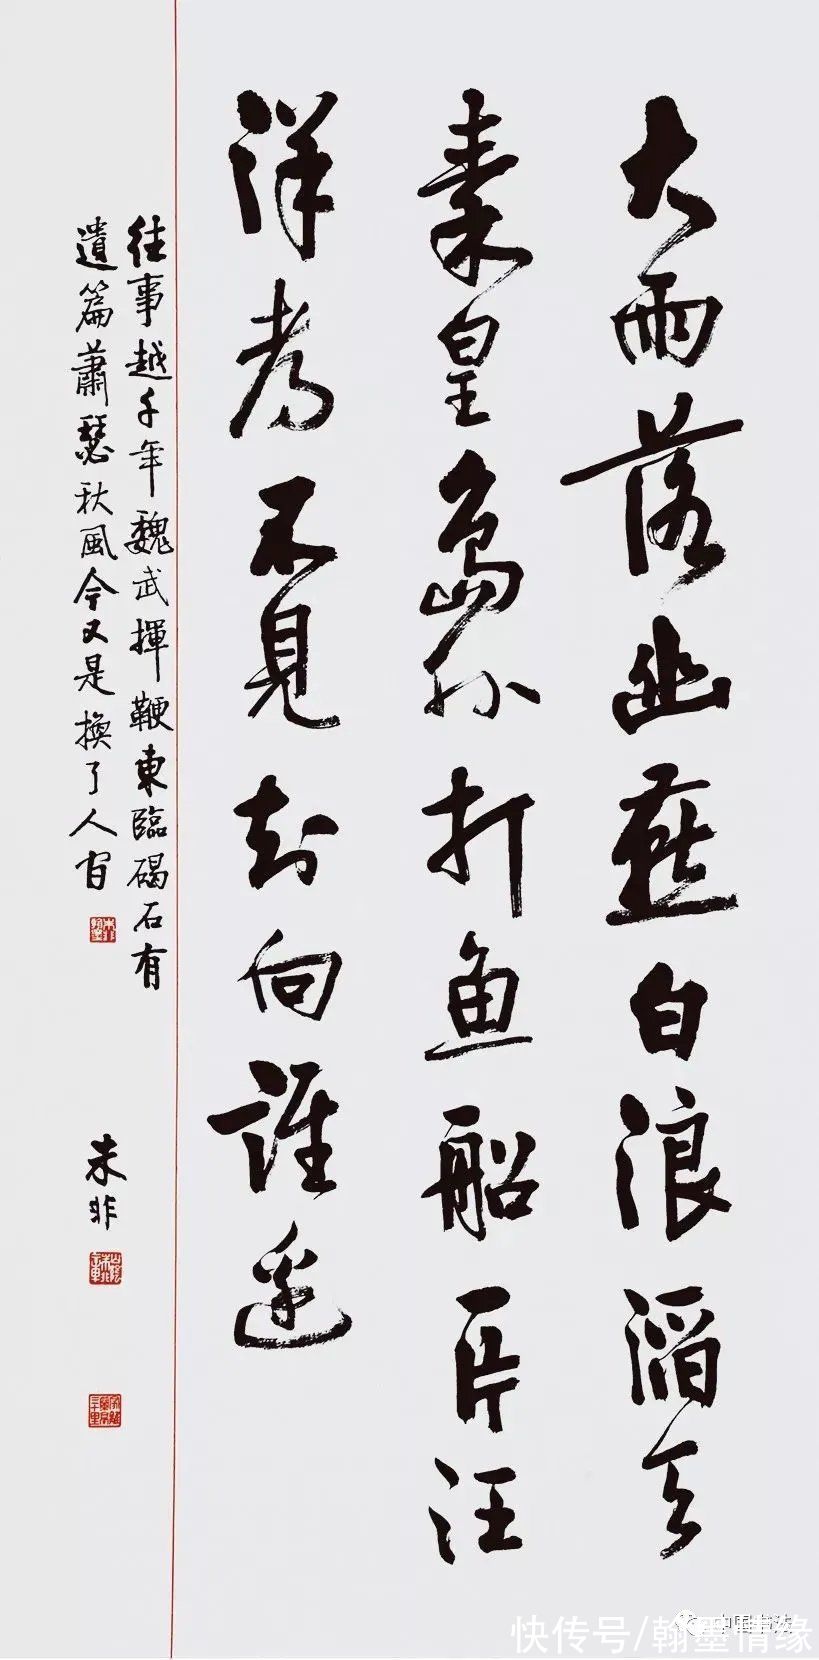 大雨落幽燕白浪滔天
秦皇島外打鱼船一片汪
洋都不見知向誰邊
往事越千年魏武揮鞭東臨碣石有
遺篇蕭瑟秋風今又是換了人间
朱非
中国书法
快传号/翰墨情缘